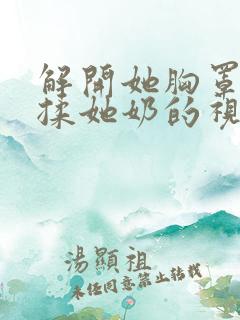 解開她胸罩
揉她奶的視
湯顯祖
未任同意禁止转载